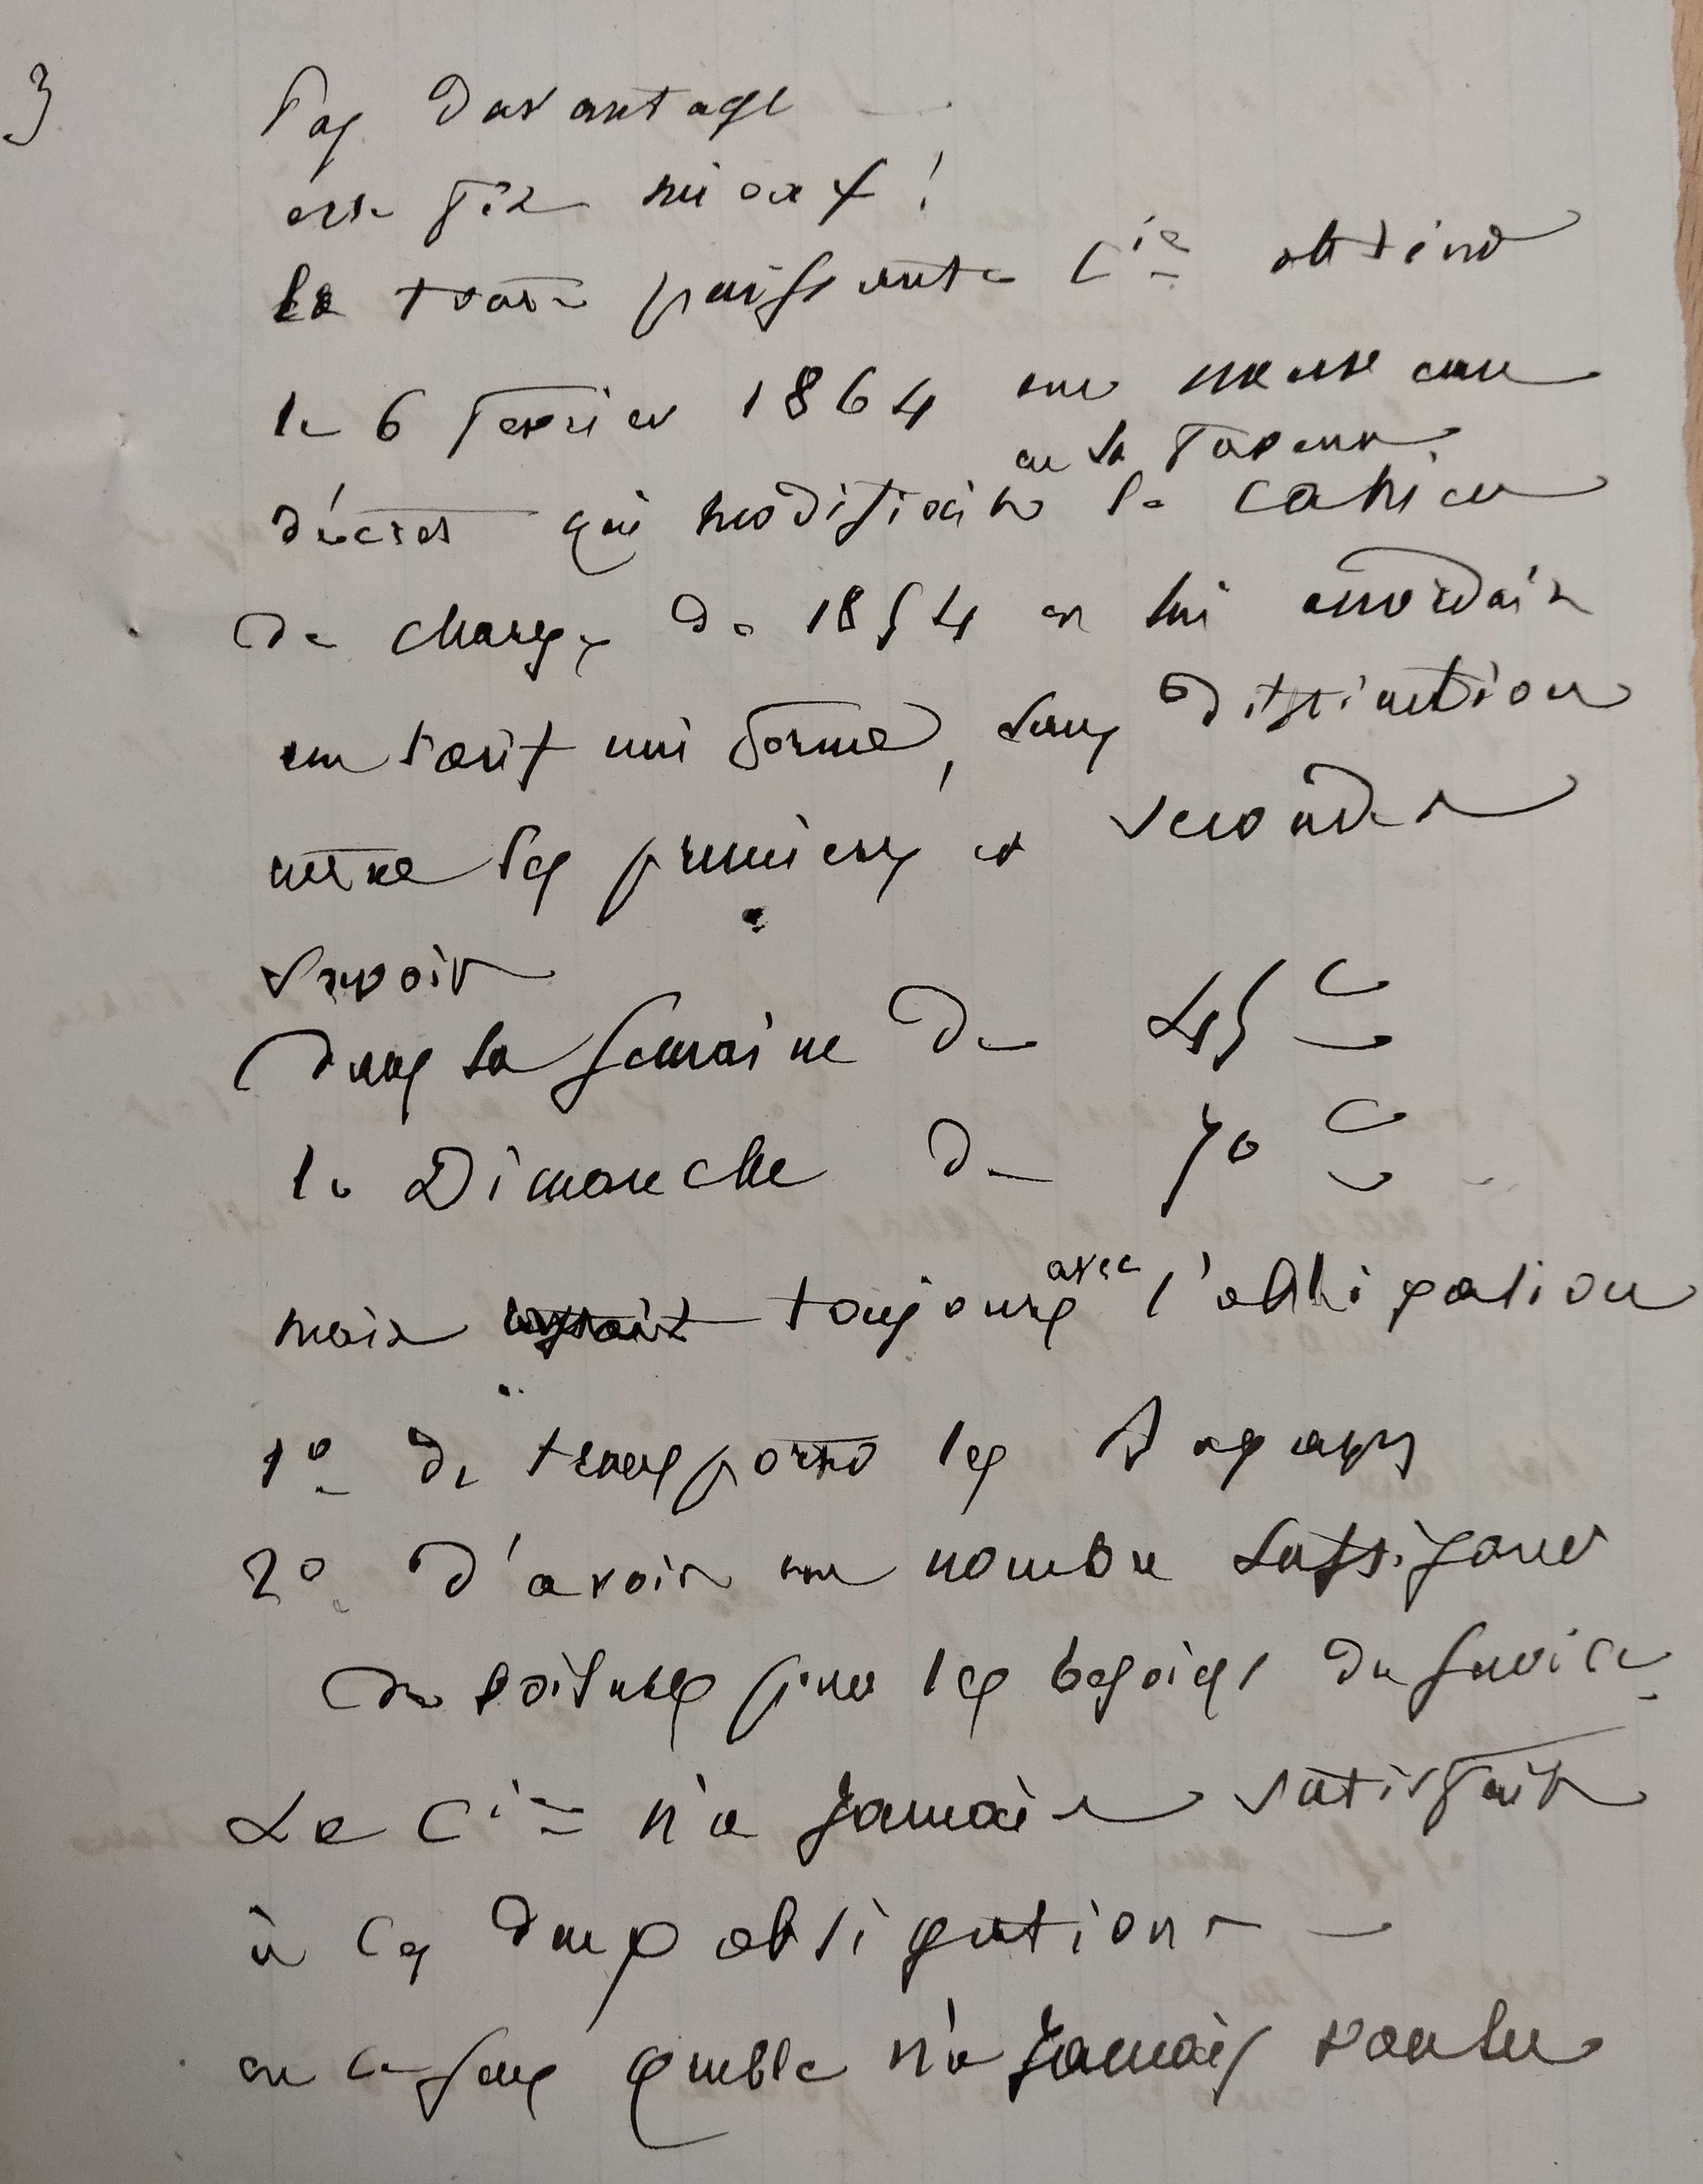 3
Pas davantage
on fit mieux !
la toute puissante Cie obtint
le 6 fevrier 1864 un nouveau
en sa faveur
décret qui modifiait le cahier
de charges de 1854 en lui accordait
un tarif uniforme, sans distinction
entre les premières et secondes
savoir
dans la semaine de 45 c
le Dimanche de 70 c
mais toujours avec l'obligation
1º de transporter les Bagages
2º d'avoir un nombre suffisant
de voitures pour les besoins du service
La Cie n'a jamais satisfait
à ces deux obligations —
en ce sens qu'elle n'a jamais voulu